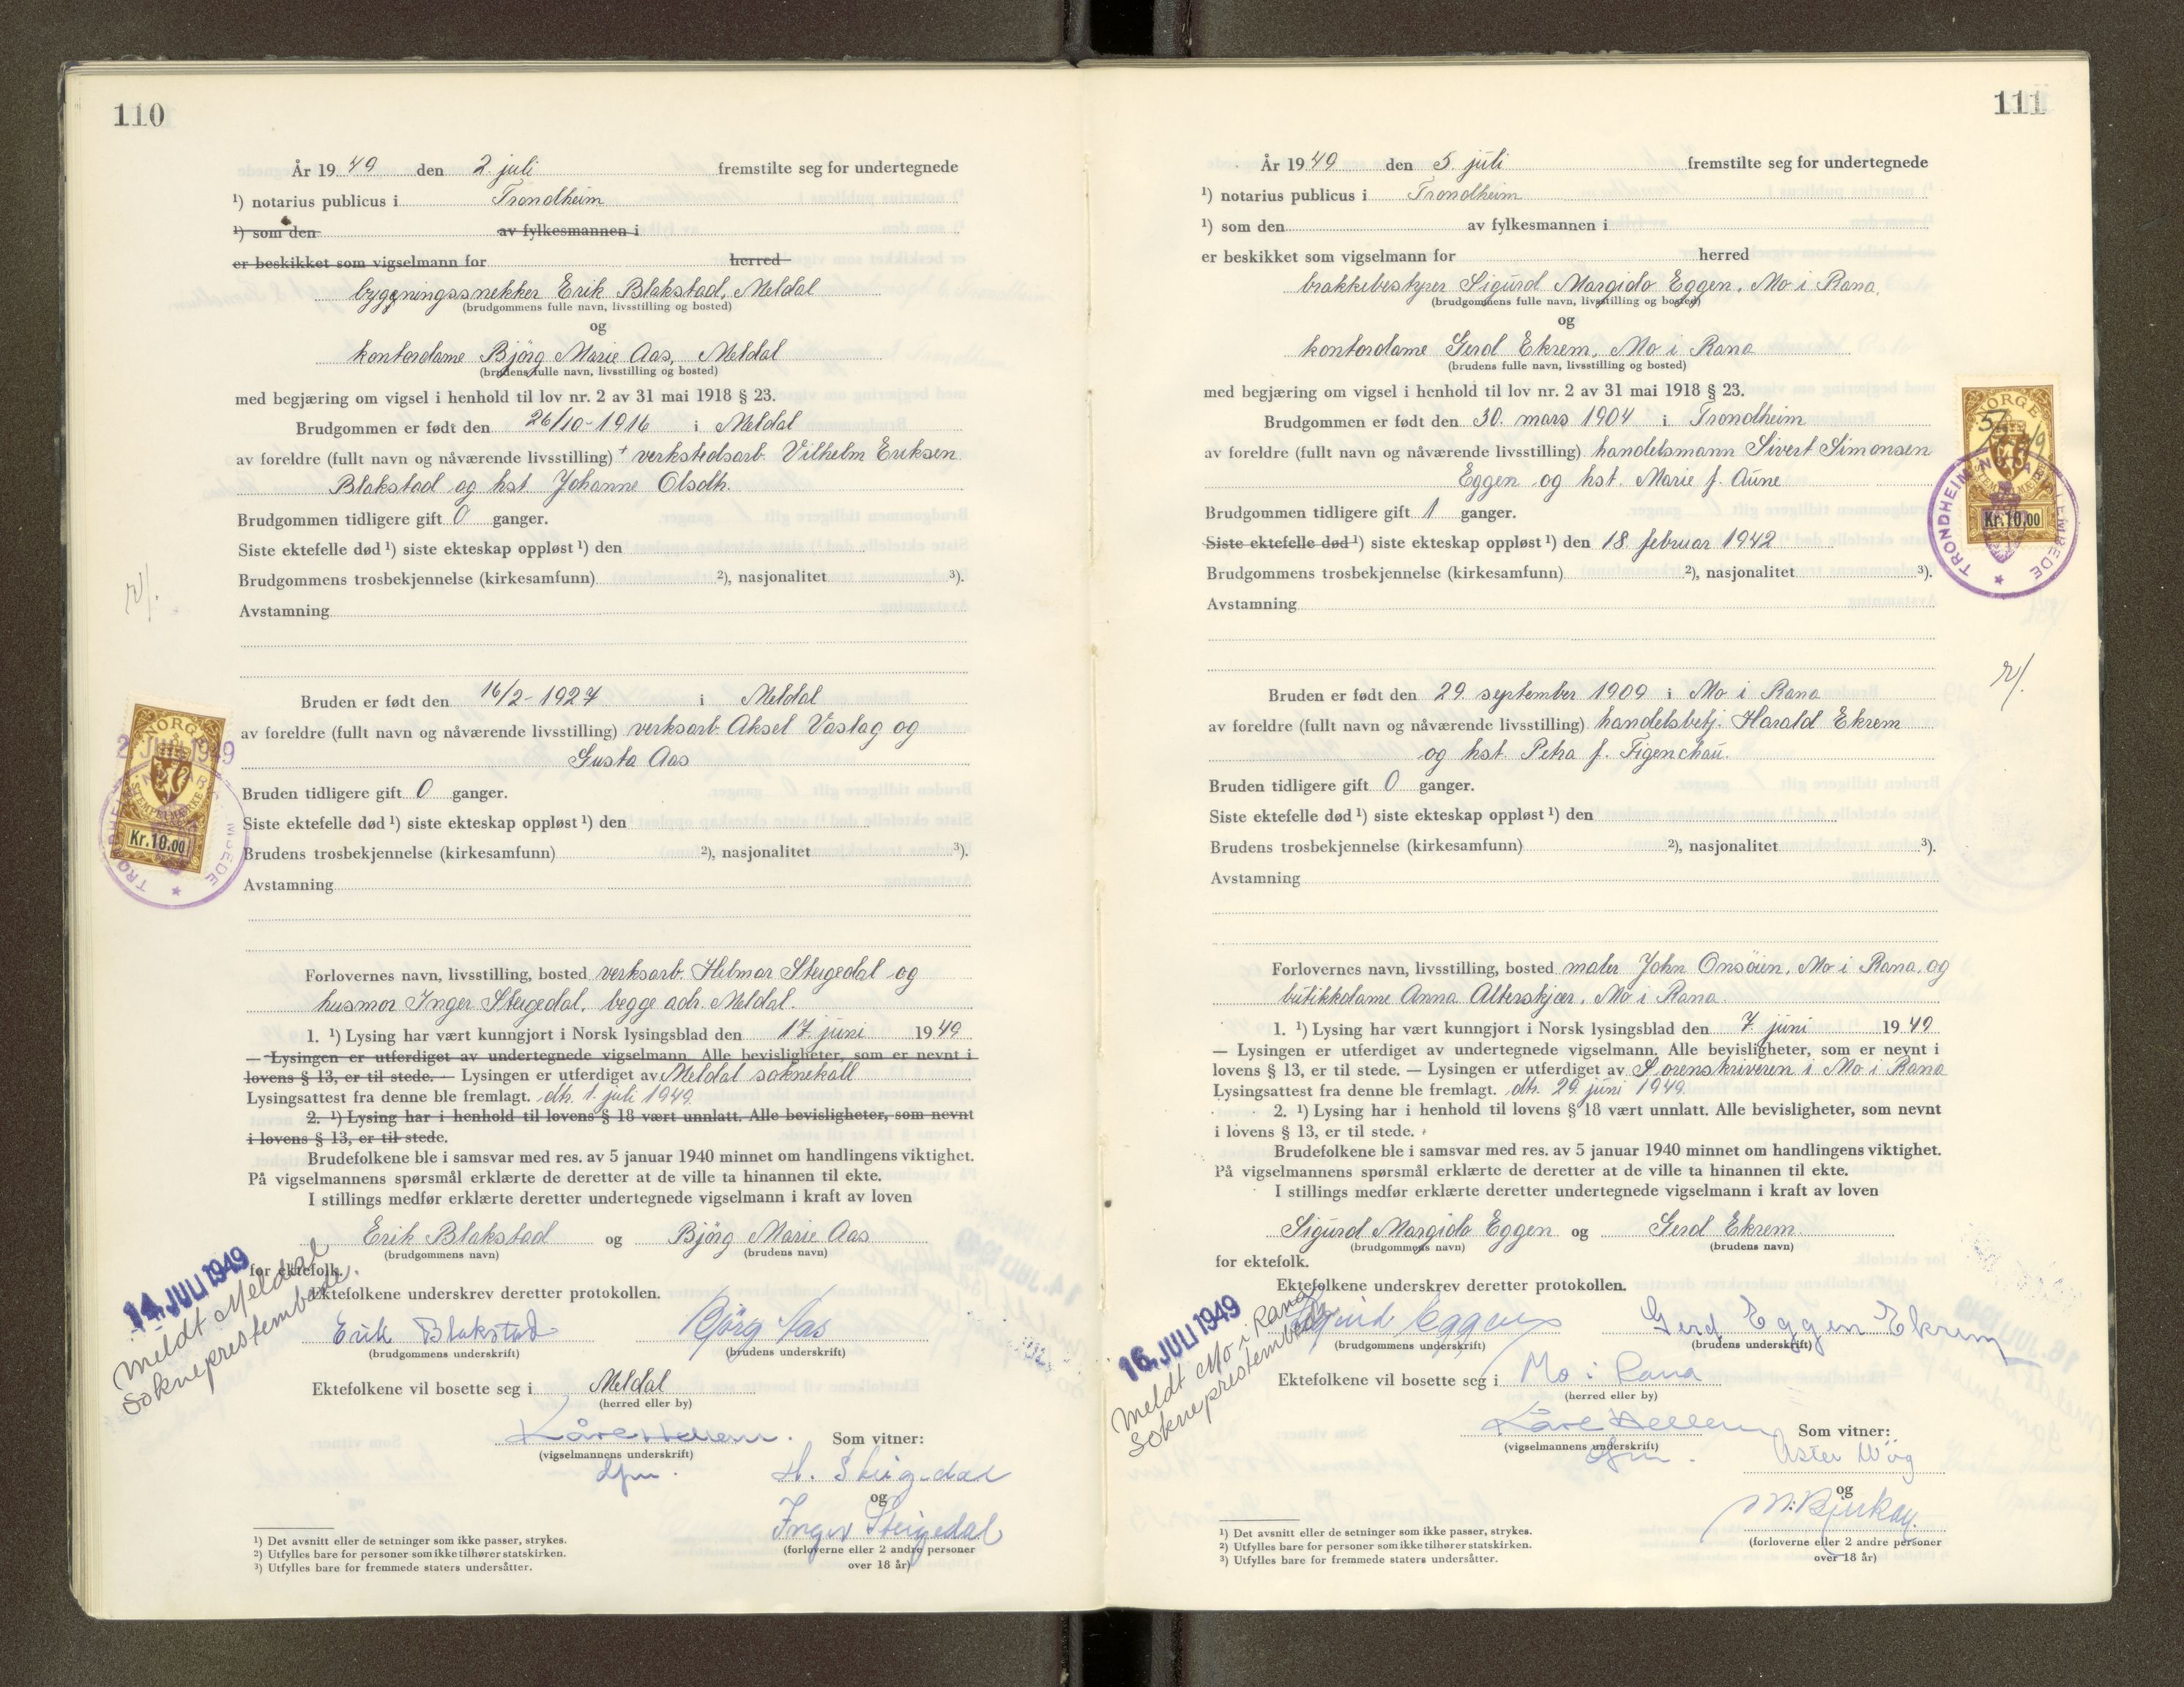 110
År 1949 den 2. juli fremstilte seg for undertegnede
¹) notarius publicus i Trondheim
¹) som den av fylkesmannen i
er beskikket som vigselmann for herred
bygningssnekker Erik Blakstad, Meldal
(brudgommens fulle navn, livsstilling og bosted)
og
kontordame Bjørg Marie Aas, Meldal
(brudens fulle navn, livsstilling og bosted)
med begjæring om vigsel i henhold til lov nr. 2 av 31 mai 1918 § 23.
Brudgommen er født den 26/10-1916 i Meldal
av foreldre (fullt navn og nåværende livsstilling) + verkstedsarb. Vilhelm Eriksen
Blakstad og hst. Johanne Olsdh.
Brudgommen tidligere gift 0 ganger.
Siste ektefelle død ¹) siste ekteskap oppløst ¹) den
Brudgommens trosbekjennelse (kirkesamfunn) ²), nasjonalitet ³).
Avstamning
Bruden er født den 16/2-1927 i Meldal
av foreldre (fullt navn og nåværende livsstilling) verksarb. Aksel Vaslag og
Gusta Aas
Bruden tidligere gift 0 ganger.
Siste ektefelle død ¹) siste ekteskap oppløst ¹) den
Brudens trosbekjennelse (kirkesamfunn) ²), nasjonalitet ³).
Avstamning
2 JULI 1949
NORGE
STEMPELMERKE
Kr. 10.00
Forlovernes navn, livsstilling, bosted verksarb. Hilmar Steigedal og
husmor Inger Steigedal, begge adr. Meldal.
1. ¹) Lysing har vært kunngjort i Norsk lysingsblad den 17. juni 1949
— Lysingen er utferdiget av undertegnede vigselmann. Alle bevisligheter, som er nevnt i
lovens § 13, er til stede. — Lysingen er utferdiget av Meldal soknekall
Lysingsattest fra denne ble fremlagt. dh. 1. juli 1949.
2. ¹) Lysing har i henhold til lovens § 18 vært unnlatt. Alle bevisligheter, som nevnt
i lovens § 13, er til stede.
Brudefolkene ble i samsvar med res. av 5 januar 1940 minnet om handlingens viktighet.
På vigselmannens spørsmål erklærte de deretter at de ville ta hinannen til ekte.
I stillings medfør erklærte deretter undertegnede vigselmann i kraft av loven
Erik Blakstad og Bjørg Marie Aas
(brudgommens navn) (brudens navn)
for ektefolk.
14. JULI 1949
Meldt Meldal
Sokneprestembede.
Ektefolkene underskrev deretter protokollen.
Erik Blakstad Bjørg Aas
(brudgommens underskrift) (brudens underskrift)
Ektefolkene vil bosette seg i Meldal
(herred eller by)
Kåre Hellem.
(vigselmannens underskrift)
Som vitner:
H. Steigedal
og
Inger Steigedal
(forloverne eller 2 andre personer
over 18 år)
¹) Det avsnitt eller de setninger som ikke passer, strykes.
²) Utfylles bare for personer som ikke tilhører statskirken.
³) Utfylles bare for fremmede staters undersåtter.
111
År 1949 den 5. juli fremstilte seg for undertegnede
¹) notarius publicus i Trondheim
¹) som den av fylkesmannen i
er beskikket som vigselmann for herred
brakkebestyrer Sigurd Margido Eggen, Mo i Rana.
(brudgommens fulle navn, livsstilling og bosted)
og
kontordame Gerd Ekrem, Mo i Rana
(brudens fulle navn, livsstilling og bosted)
med begjæring om vigsel i henhold til lov nr. 2 av 31 mai 1918 § 23.
Brudgommen er født den 30. mars 1904 i Trondheim
av foreldre (fullt navn og nåværende livsstilling) handelsmann Sivert Simonsen
Eggen og hst. Marie f. Aune
Brudgommen tidligere gift 1 ganger.
Siste ektefelle død ¹) siste ekteskap oppløst ¹) den 18. februar 1942
Brudgommens trosbekjennelse (kirkesamfunn) ²), nasjonalitet ³).
Avstamning
NORGE
Kr. 10.00
TRONDHEIM
Bruden er født den 29. september 1909 i Mo i Rana
av foreldre (fullt navn og nåværende livsstilling) handelsbetj. Harald Ekrem
og hst. Petra f. Figenchau.
Bruden tidligere gift 0 ganger.
Siste ektefelle død ¹) siste ekteskap oppløst ¹) den
Brudens trosbekjennelse (kirkesamfunn) ²), nasjonalitet ³).
Avstamning
Forlovernes navn, livsstilling, bosted maler John Onsöien, Mo i Rana, og
butikkdame Anna Alterskjær, Mo i Rana.
1. ¹) Lysing har vært kunngjort i Norsk lysingsblad den 7. juni 1949
— Lysingen er utferdiget av undertegnede vigselmann. Alle bevisligheter, som er nevnt i
lovens § 13, er til stede. — Lysingen er utferdiget av Sorenskriveren i Mo i Rana
Lysingsattest fra denne ble fremlagt. dh. 29. juni 1949.
2. ¹) Lysing har i henhold til lovens § 18 vært unnlatt. Alle bevisligheter, som nevnt
i lovens § 13, er til stede.
Brudefolkene ble i samsvar med res. av 5 januar 1940 minnet om handlingens viktighet.
På vigselmannens spørsmål erklærte de deretter at de ville ta hinannen til ekte.
I stillings medfør erklærte deretter undertegnede vigselmann i kraft av loven
Sigurd Margido Eggen og Gerd Ekrem
(brudgommens navn) (brudens navn)
for ektefolk.
Ektefolkene underskrev deretter protokollen.
16. JULI 1949
Meldt Mo i Rana
Sokneprestembede
Sigurd Eggen Gerd Eggen Ekrem
(brudgommens underskrift) (brudens underskrift)
Ektefolkene vil bosette seg i Mo i Rana
(herred eller by)
Kåre Hellem
(vigselmannens underskrift)
Som vitner:
og
(forloverne eller 2 andre personer
over 18 år)
¹) Det avsnitt eller de setninger som ikke passer, strykes.
²) Utfylles bare for personer som ikke tilhører statskirken.
³) Utfylles bare for fremmede staters undersåtter.